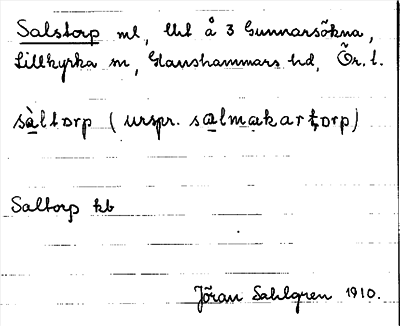 Salstorp ml, lht å 3 Gunnarsökna,
Lillkyrka sn, Glanshammars hd, Ör. l.
sàltorp (urspr. salmakartorp)
Saltorp kb
Jöran Sahlgren 1910.